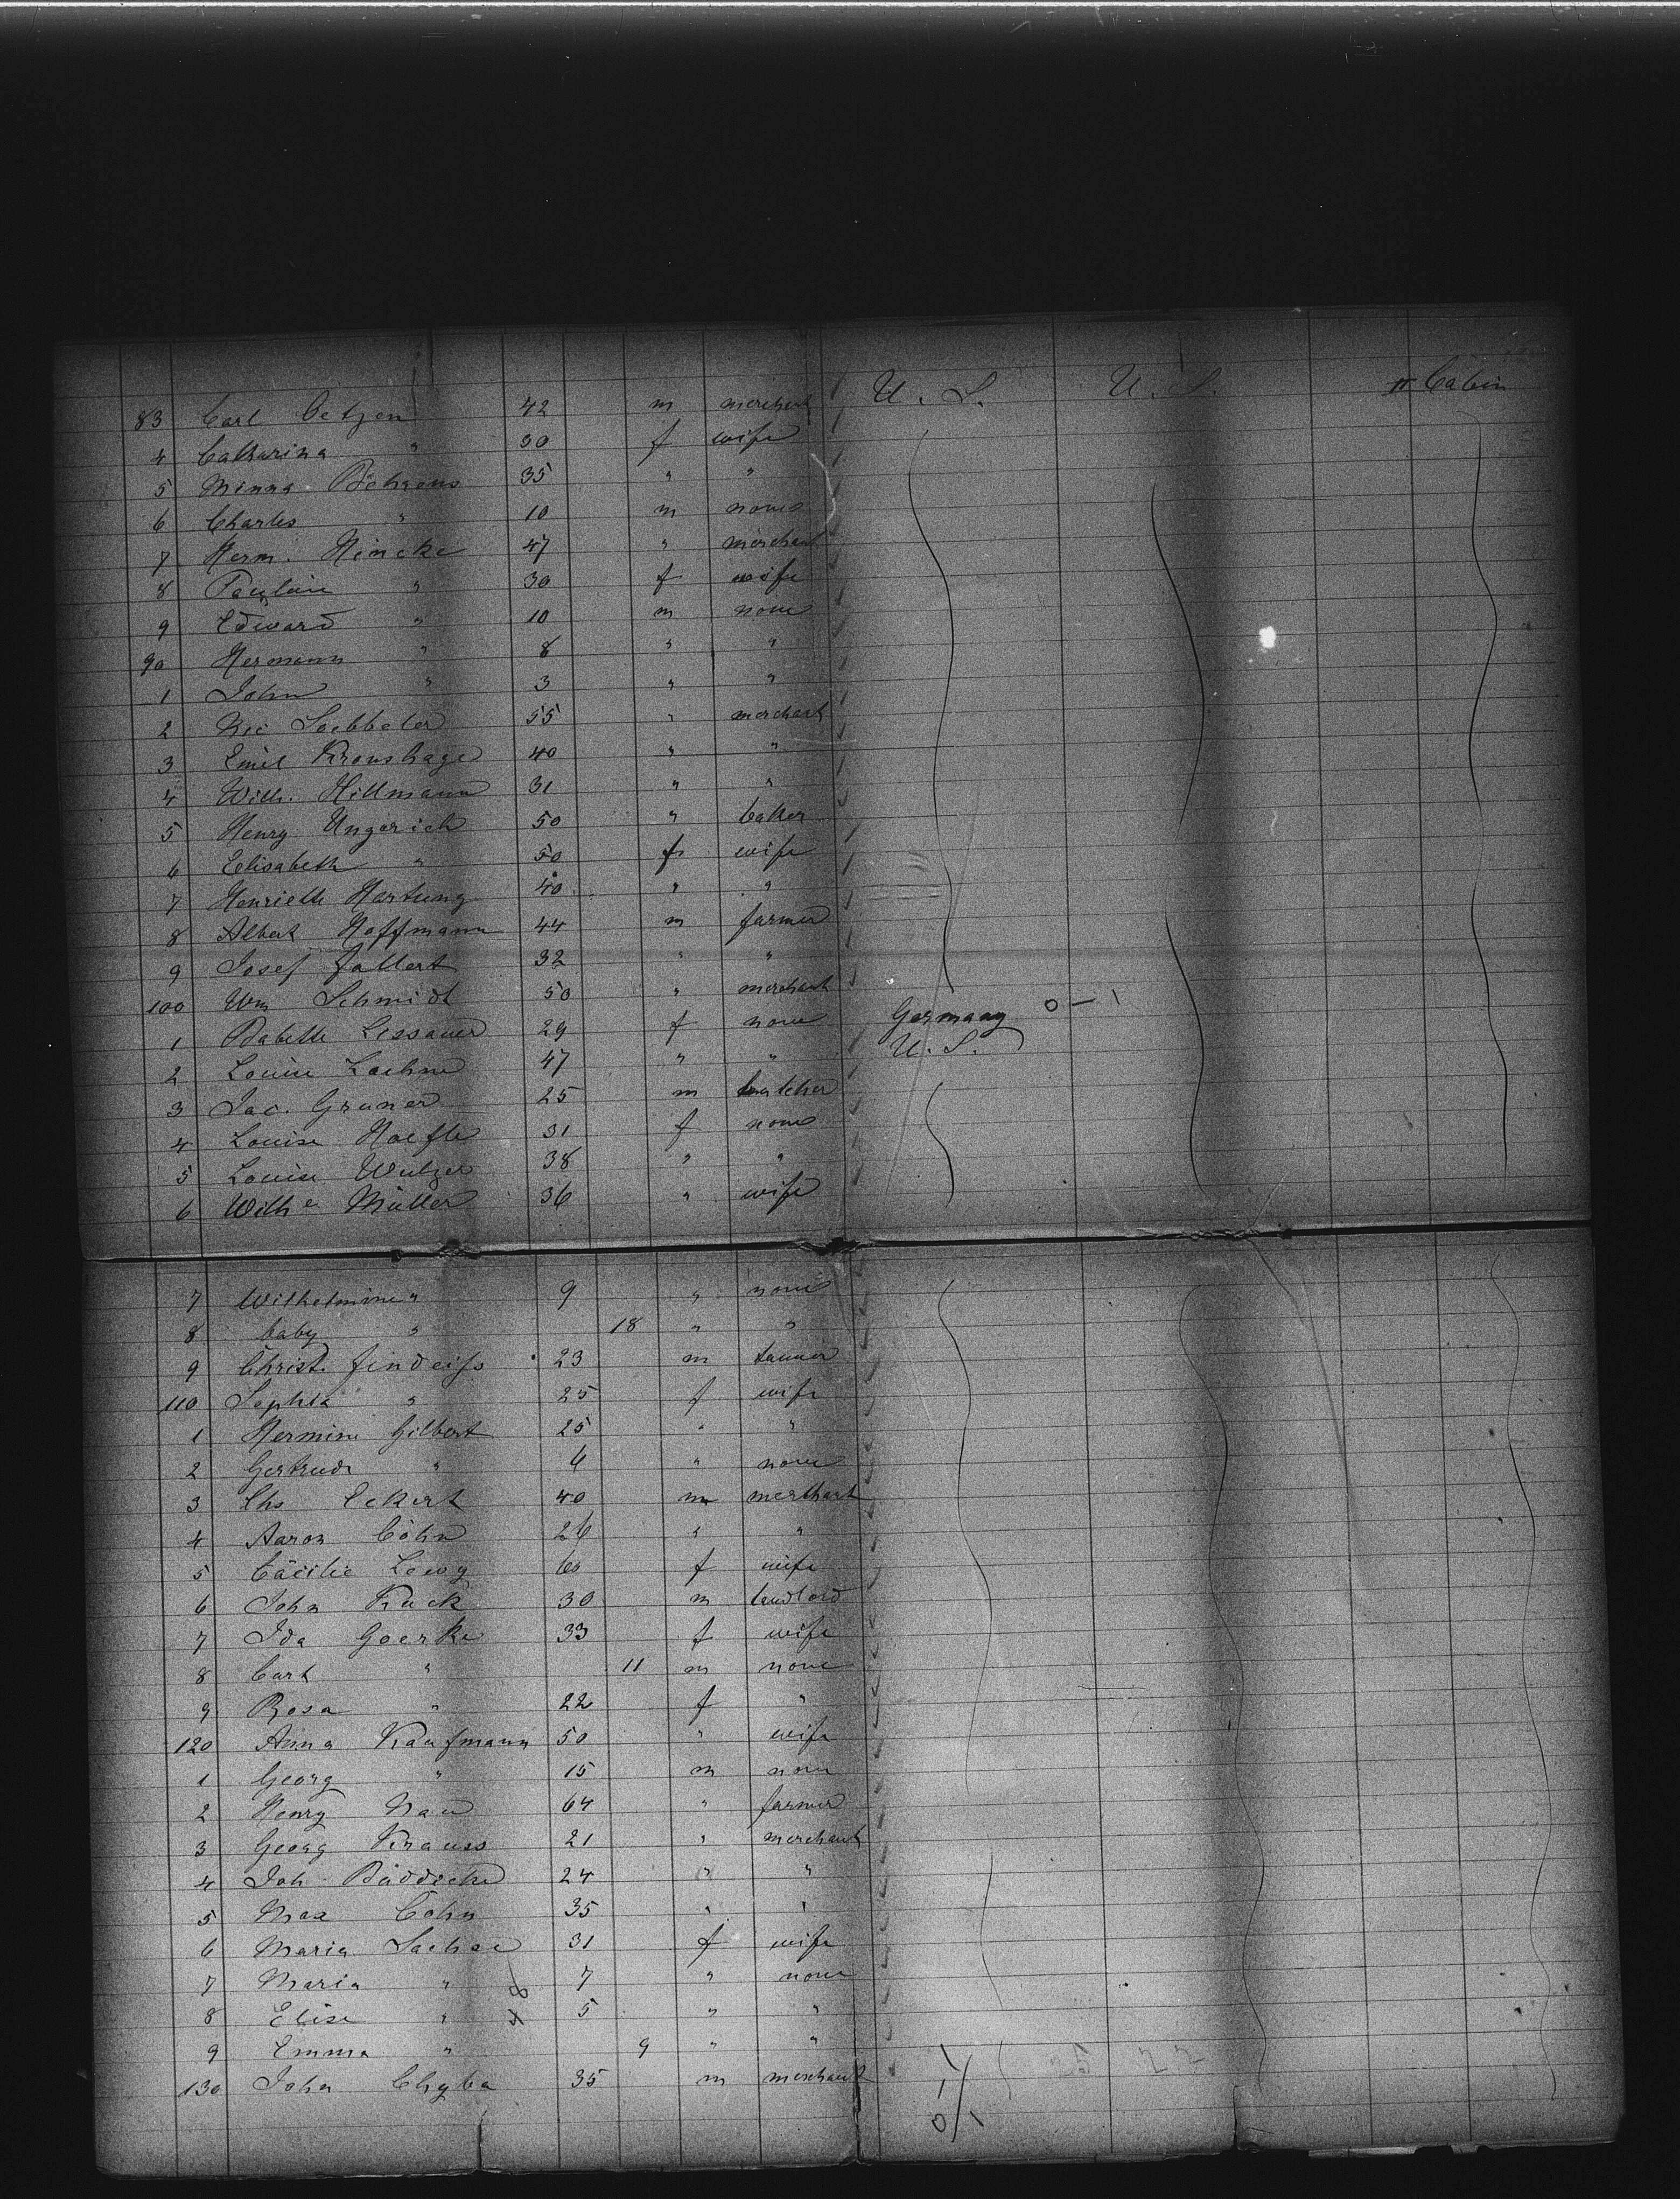 83 Carl Oetzen 42 m merchant U. S. U. S. II Cabin
4 Catharina " 30 f wife
5 Minna Behrens 35 " "
6 Charles " 10 m none
7 Herm. Hincke 47 " merchant
8 Pauline " 30 f wife
9 Edward " 10 m none
90 Hermann " 8 " "
1 John " 3 " "
2 Nic Loebbeler 55 " merchant
3 Emil Kronshage 40 " "
4 Wilh. Hillmann 31 " "
5 Henry Ungerich 50 " baker
6 Elisabeth " 50 f wife
7 Henriette Hartung 40 " "
8 Albert Hoffmann 44 m farmer
9 Josef Fallert 32 " "
100 Wm Schmidt 50 " merchant
1 Babette Lessauer 29 f none Germany 0 — 1
2 Louise 47 " " U. S.
3 Jac. Gruner 25 m butcher
4 Louise Hoefle 31 f none
5 Louise Wulzer 38 " "
6 Wilh e Müller 36 " wife
7 Wilhelmine " 9 " none
8 baby " 18 " "
9 Christ. Findeiss 23 m tanner
110 Sophia " 25 f wife
1 Hermine Gilbert 25 " "
2 Gertrude " 4 " none
3 Chs Eckert 40 m merchant
4 Aaron Cohn 26 " "
5 Cäcilie Levy 60 f wife
6 John Kuck 30 m landlord
7 Ida Goerke 33 f wife
8 Curt " 11 m none
9 Rosa " 22 f "
120 Anna Kaufmann 50 " wife
1 Georg " 15 m none
2 Henry Nau 64 " farmer
3 Georg Krauss 21 " merchant
4 Joh Büddicke 24 " "
5 Max Cohn 35 " "
6 Maria Sachse 31 f wife
7 Maria " 7 " none
8 Elise " 5 " "
9 Emma " 9 " "
130 John Chyba 35 m merchant
0/1